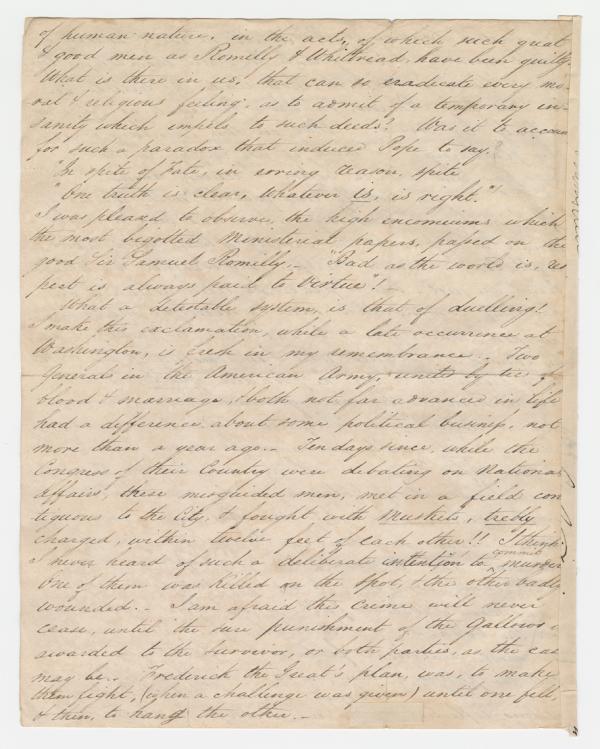 of human nature, in the acts, of which such great
& good men as Romilly & Whitbread, have been guilty
What is there in us, that can so eradicate every mo-
ral & religious feeling, as to admit of a temporary in-
sanity which impels to such deeds? Was it to account
for such a paradox that induced Pope to say?
"In spite of Fate, in erring reason, spite
"One truth is clear, whatever is, is right."
I was pleased to observe, the high encomiums which
the most bigotted Ministerial papers, passed on the
good Sir Samuel Romilly.- "Bad as the world is, res
pect is always paid to Virtue"!-
What a detestable system, is that of duelling!
I make this exclamation, while a late occurrence at
Washington, is fresh in my remembrance.- Two
Generals in the American Army, united by ties of
blood & marriage, & both not far advanced in life
had a difference about some political business, not
more than a year ago.- Ten days since, while the
Congress of their Country were debating on National
affairs, these misguided men, met in a field con
tiguous to the City, & fought with Muskets, trebly
charged, within twelve feet of each other!! I think
I never heard of such a deliberate intention to commit murder
One of them was killed on the spot, & the other badly
wounded.- I am afraid the crime will never
cease, until the sure punishment of the Gallows is
awarded to the survivor, or both parties, as the case
may be.- Frederick the Great's plan, was, to make
them fight, (when a challenge was given) until one fell,
& then, to hang the other.-